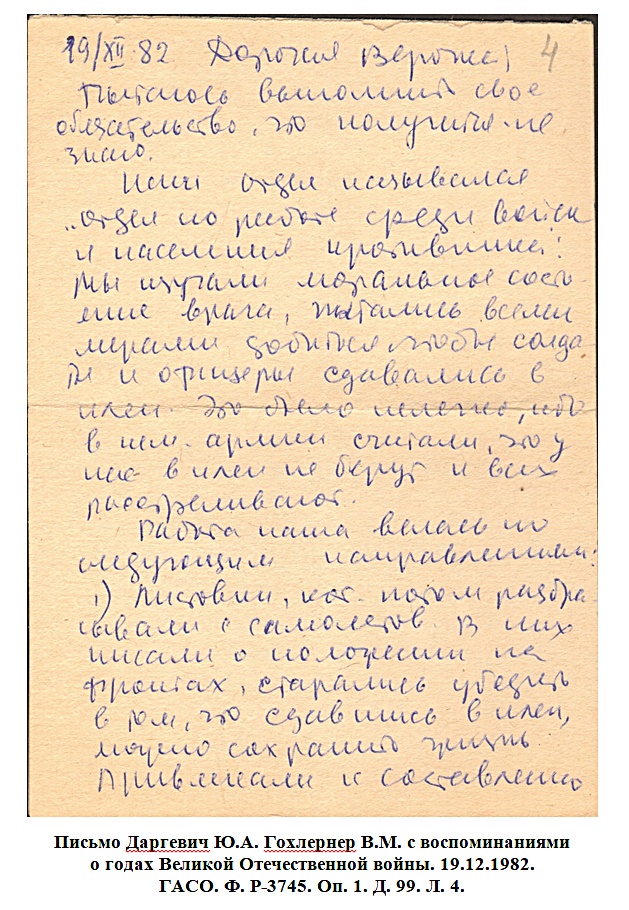 19/XII 82 Дорогая Верочка!
4
Пытаюсь выполнить свое
обязательство, что получится не
знаю.
Наш отдел назывался
„отдел по работе среди войск
и населения противника".
Мы изучали моральное состо-
яние врага, пытались всеми
мерами добиться чтобы солда-
ты и офицеры сдавались в
плен. Это было нелегко, ибо
в нем. армии считали, что у
нас в плен не берут и всех
расстреливают.
Работа наша велась по
следующим направлениям:
1) Листовки, кот. потом разбра-
сывали с самолетов. В них
писали о положении на
фронтах, старались убедить
в том, что сдавшись в плен,
можно сохранить жизнь
Привлекали к составлению
Письмо Даргевич Ю.А. Гохлернер В.М. с воспоминаниями
о годах Великой Отечественной войны. 19.12.1982.
ГАСО. Ф. Р-3745. Оп. 1. Д. 99. Л. 4.